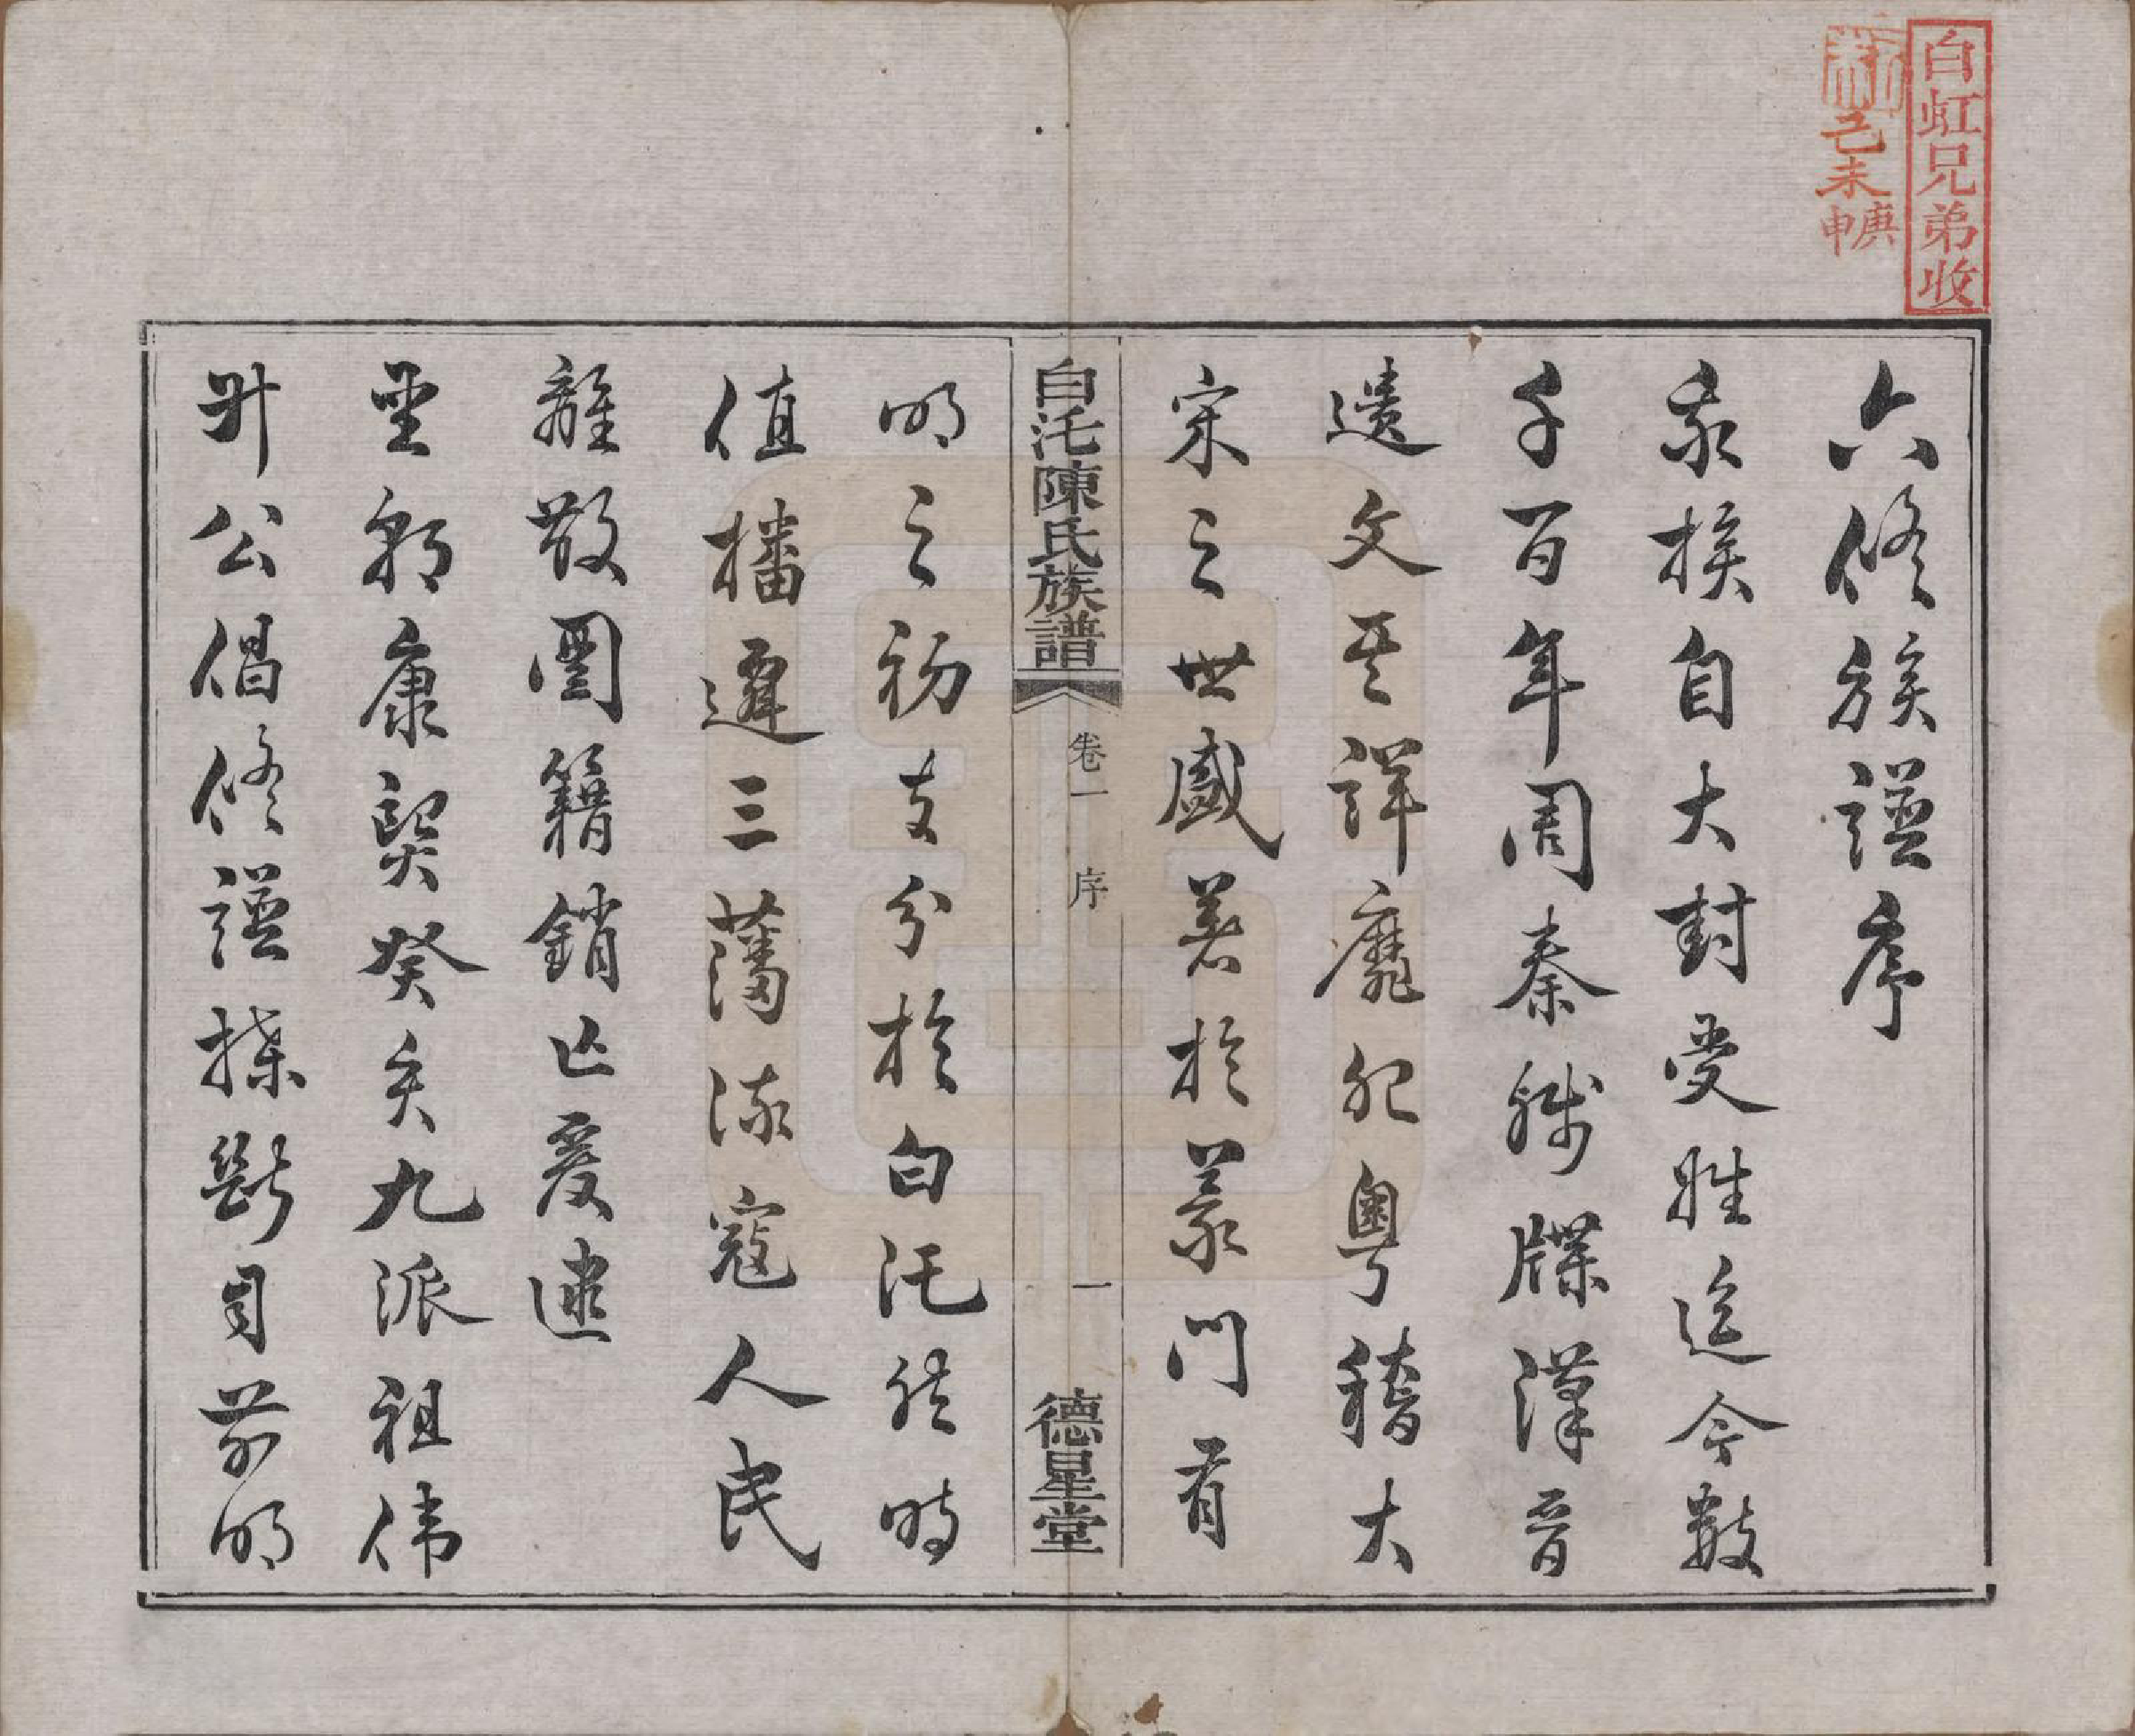 白虹兄弟收
己未
庚申
六修族譜序
我族自大封受姓迄今數
千百年周秦殘牒漢晉
遺文其詳靡紀粵稽大
宋之世盛著於義門有
白汑陳氏族譜
卷一
序
一
德星堂
明之初支分於白汑然時
值播遷三藩流寇人民
離散圖籍銷亡爰逮
聖朝康熙癸亥九派祖偉
升公倡修譜牒斷自前明